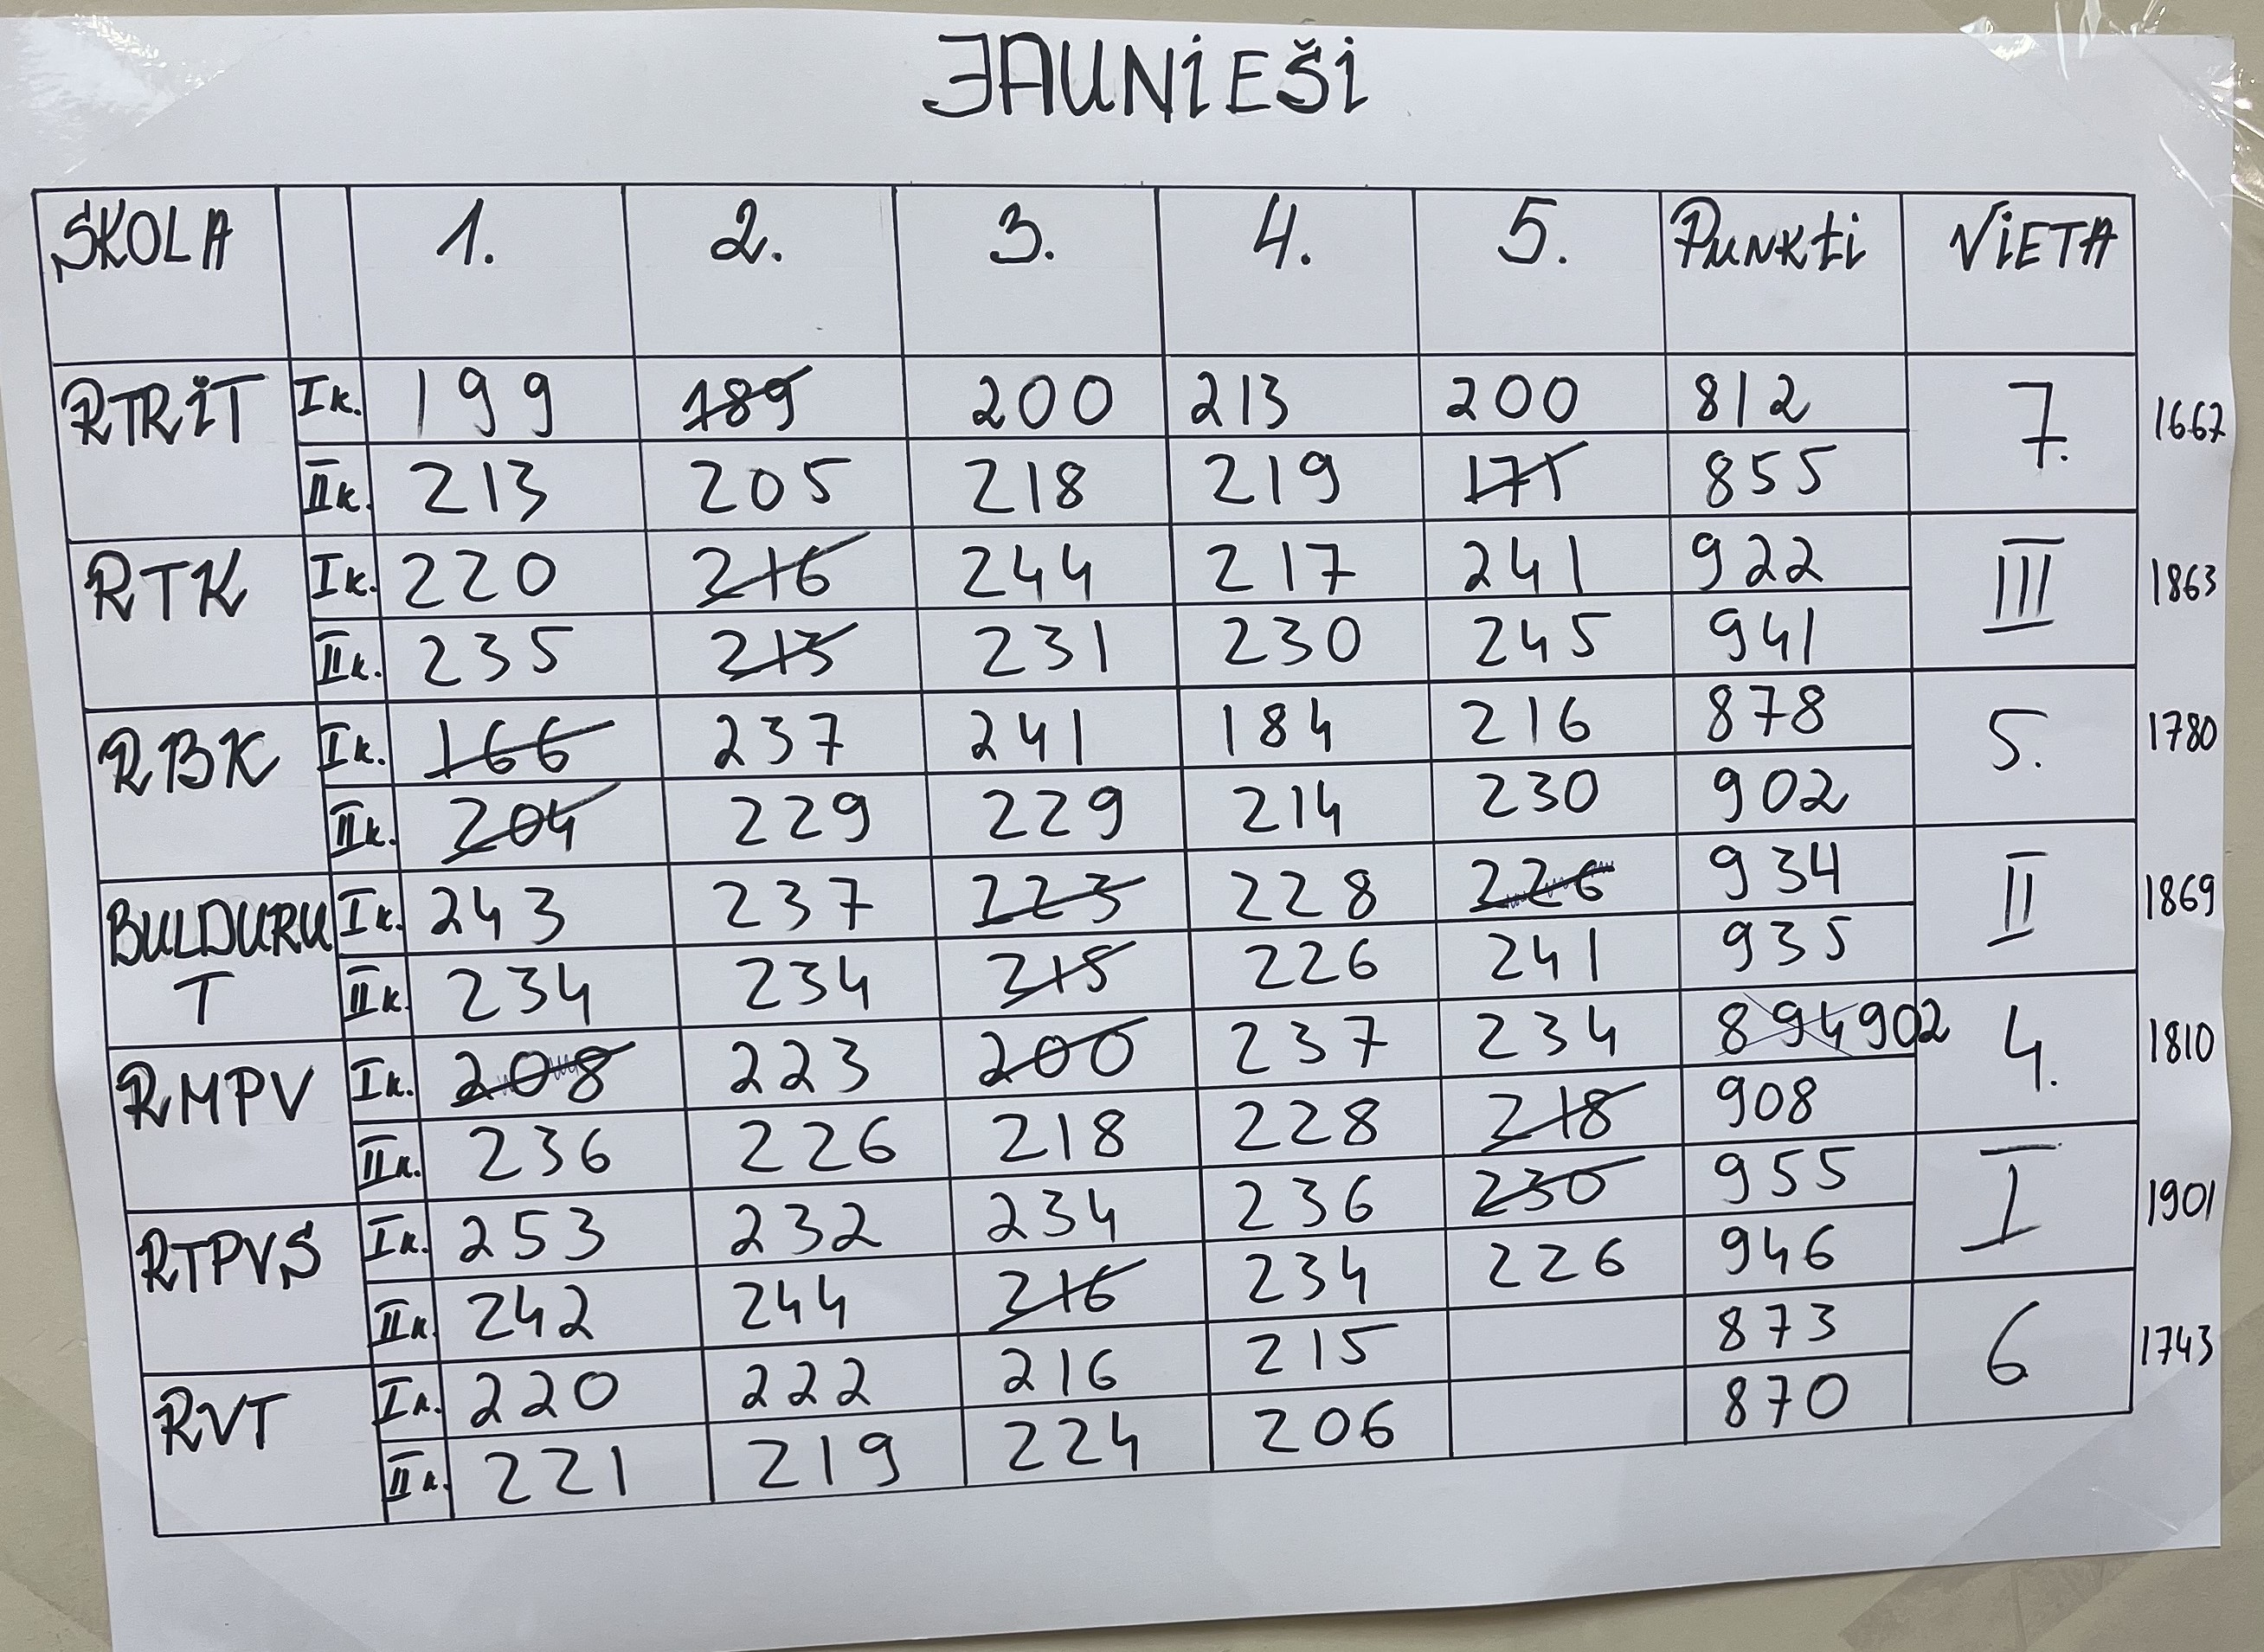 JAUNIEŠI
SKOLA 1. 2. 3. 4. 5. PUNKti VIETA
RTRIT I k. 199 189 200 213 200 812 7. 1667
II k. 213 205 218 219 171 855
RTK I k. 220 216 244 217 241 922 III 1863
II k. 235 213 231 230 245 941
RBK I k. 166 237 241 184 216 878 5. 1780
II k. 204 229 229 214 230 902
BULDURU T I k. 243 237 223 228 226 934 II 1869
II k. 234 234 215 226 241 935
RMPV I k. 208 223 200 237 234 894 902 4. 1810
II k. 236 226 218 228 218 908
RTPVS I k. 253 232 234 236 230 955 I 1901
II k. 242 244 216 234 226 946
RVT I k. 220 222 216 215 873 6 1743
II k. 221 219 224 206 870